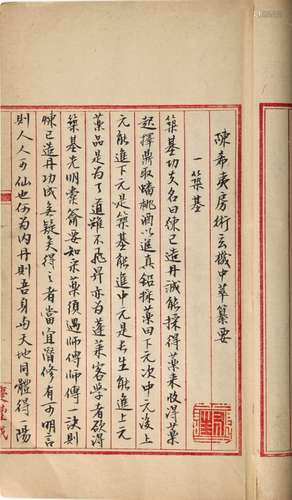 陳希夷房術玄機中萃纂要
一築基
築基功夫名曰煉己造丹誠能採得藥來收得藥
起擇鼎取蟠桃酒以進真鉛採藥由下元次中元後上
元能進下元是築基能進中元是長生能進上元
藥品是為了道雖不飛昇亦為蓬萊客學者欲得
築基先明橐籥要知采藥須遇師傳師傳一訣則
煉己造丹功成無疑矣得之者當宜潛修有可明言
則人人可仙也何為內丹則吾身與天地同體得一陽